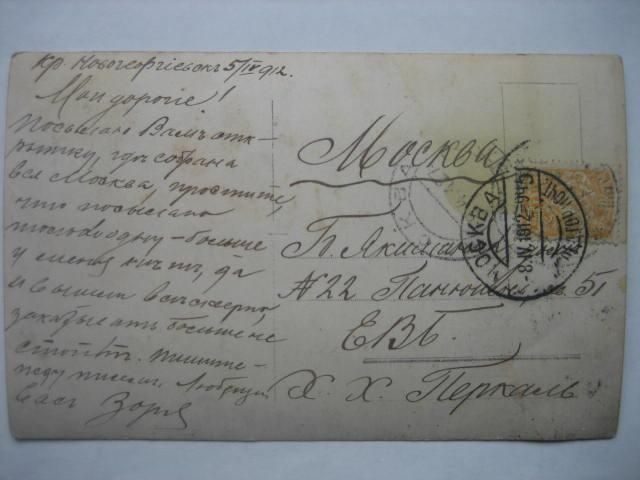 Кр. Новогеоргіевскъ 5/IV 912.
Мои дорогіе!
Посылаю Вамъ отк-
рытку, гдѣ собрана
вся Москва, простите,
что посылаю
только одну – больше
у меня нѣтъ, да
и вышли
заказывать больше не
стоитъ. Пишите –
жду писемъ. Любящій
Васъ Зоря
Москва
Б. Якиманка
№ 22 Панюшина, кв. 51
ЕВБ.
Х. Х. Перкаль
МОСКВА
-8.IV.1912